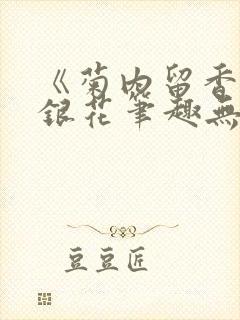 《菊内留香
銀花筆趣無
豆豆匠